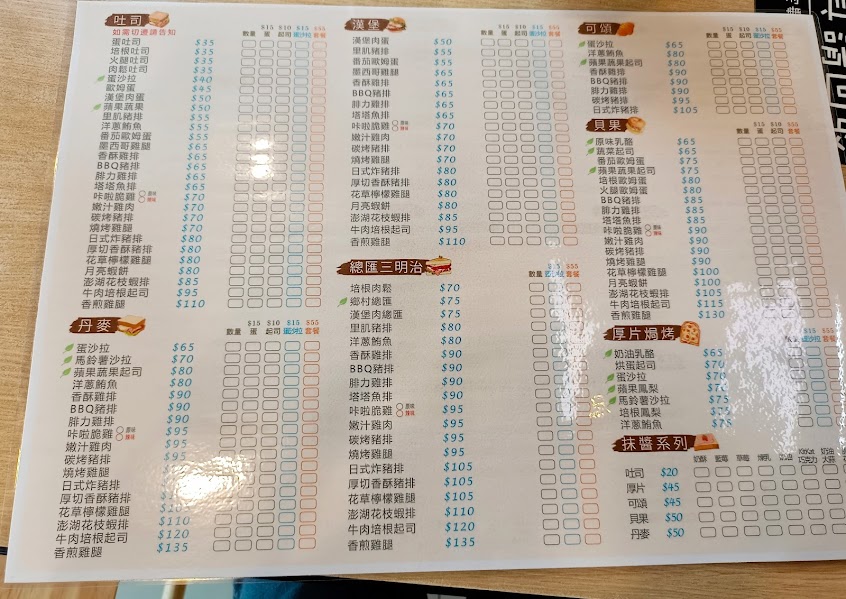 吐司
如需切邊請告知
數量 $15 蛋 $10 起司 $15 蛋沙拉 $55 套餐
蛋吐司 $35
培根吐司 $35
火腿吐司 $35
肉鬆吐司 $35
蛋沙拉 $40
歐姆蛋 $45
漢堡肉蛋 $50
蘋果蔬果 $50
里肌豬排 $55
洋蔥鮪魚 $55
番茄歐姆蛋 $55
墨西哥雞腿 $65
香酥雞排 $65
BBQ豬排 $65
腓力雞排 $65
塔塔魚排 $65
咔啦脆雞 原味 辣味 $70
嫩汁雞肉 $70
碳烤豬排 $70
燒烤雞腿 $70
日式炸豬排 $80
厚切香酥豬排 $80
花草檸檬雞腿 $80
月亮蝦餅 $80
澎湖花枝蝦排 $85
牛肉培根起司 $95
香煎雞腿 $110
丹麥
數量 $15 蛋 $10 起司 $15 蛋沙拉 $55 套餐
蛋沙拉 $65
馬鈴薯沙拉 $70
蘋果蔬果起司 $80
洋蔥鮪魚 $80
香酥雞排 $90
BBQ豬排 $90
腓力雞排 $90
咔啦脆雞 原味 辣味 $95
嫩汁雞肉 $95
碳烤豬排 $95
燒烤雞腿
日式炸豬排
厚切香酥豬排
花草檸檬雞腿
澎湖花枝蝦排 $110
牛肉培根起司 $120
香煎雞腿 $135
漢堡
數量 $15 蛋 $10 起司 $15 蛋沙拉 $55 套餐
漢堡肉蛋 $50
里肌豬排 $55
番茄歐姆蛋 $55
墨西哥雞腿 $65
香酥雞排 $65
BBQ豬排 $65
腓力雞排 $65
塔塔魚排 $65
咔啦脆雞 原味 辣味 $70
嫩汁雞肉 $70
碳烤豬排 $70
燒烤雞腿 $70
日式炸豬排 $80
厚切香酥豬排 $80
花草檸檬雞腿 $80
月亮蝦餅 $80
澎湖花枝蝦排 $85
牛肉培根起司 $95
香煎雞腿 $110
總匯三明治
數量 $15 $55 套餐
培根肉鬆 $70
鄉村總匯 $75
漢堡肉總匯 $75
里肌豬排 $80
洋蔥鮪魚 $80
香酥雞排 $90
BBQ豬排 $90
腓力雞排 $90
塔塔魚排 $90
咔啦脆雞 原味 辣味 $95
嫩汁雞肉 $95
碳烤豬排 $95
燒烤雞腿 $95
日式炸豬排 $105
厚切香酥豬排 $105
花草檸檬雞腿 $105
澎湖花枝蝦排 $110
牛肉培根起司 $120
香煎雞腿 $135
可頌
數量 $15 蛋 $10 起司 $15 蛋沙拉 $55 套餐
蛋沙拉 $65
洋蔥鮪魚 $80
蘋果蔬果起司 $80
香酥雞排 $90
BBQ豬排 $90
腓力雞排 $90
碳烤豬排 $95
日式炸豬排 $105
貝果
數量 $15 蛋 $10 起司 $55 套餐
原味乳酪 $65
蔬菜起司 $65
番茄歐姆蛋 $75
蘋果蔬果起司 $75
培根歐姆蛋 $80
火腿歐姆蛋 $80
BBQ豬排 $85
腓力雞排 $85
塔塔魚排 $85
咔啦脆雞 原味 辣味 $90
嫩汁雞肉 $90
碳烤豬排 $90
燒烤雞腿 $90
花草檸檬雞腿 $100
月亮蝦餅 $100
澎湖花枝蝦排 $105
牛肉培根起司 $115
香煎雞腿 $130
厚片焗烤
數量 $15 蛋沙拉 $55 套餐
奶油乳酪 $65
烘蛋起司 $70
蛋沙拉 $70
蘋果鳳梨 $70
馬鈴薯沙拉 $75
培根鳳梨 $75
洋蔥鮪魚 $75
抹醬系列
奶酥 藍莓 草莓 煉乳 奶油 KitKat巧克力 奶油大蒜
吐司 $20
厚片 $45
可頌 $45
貝果 $50
丹麥 $50